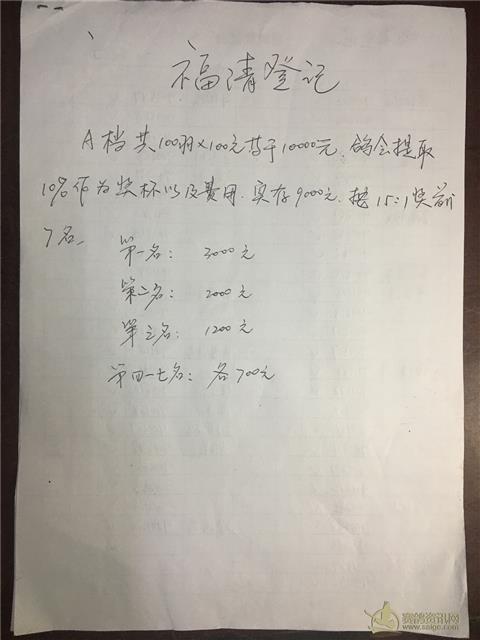 福清登记
A档共100羽×100元等于10000元.鸽会提取
10%作为奖杯以及费用.实存9000元.按15:1奖前
7名。
第一名: 3000元
第二名: 2000元
第三名: 1200元
第四一七名: 各700元
赛鸽资讯网
www.saige.com